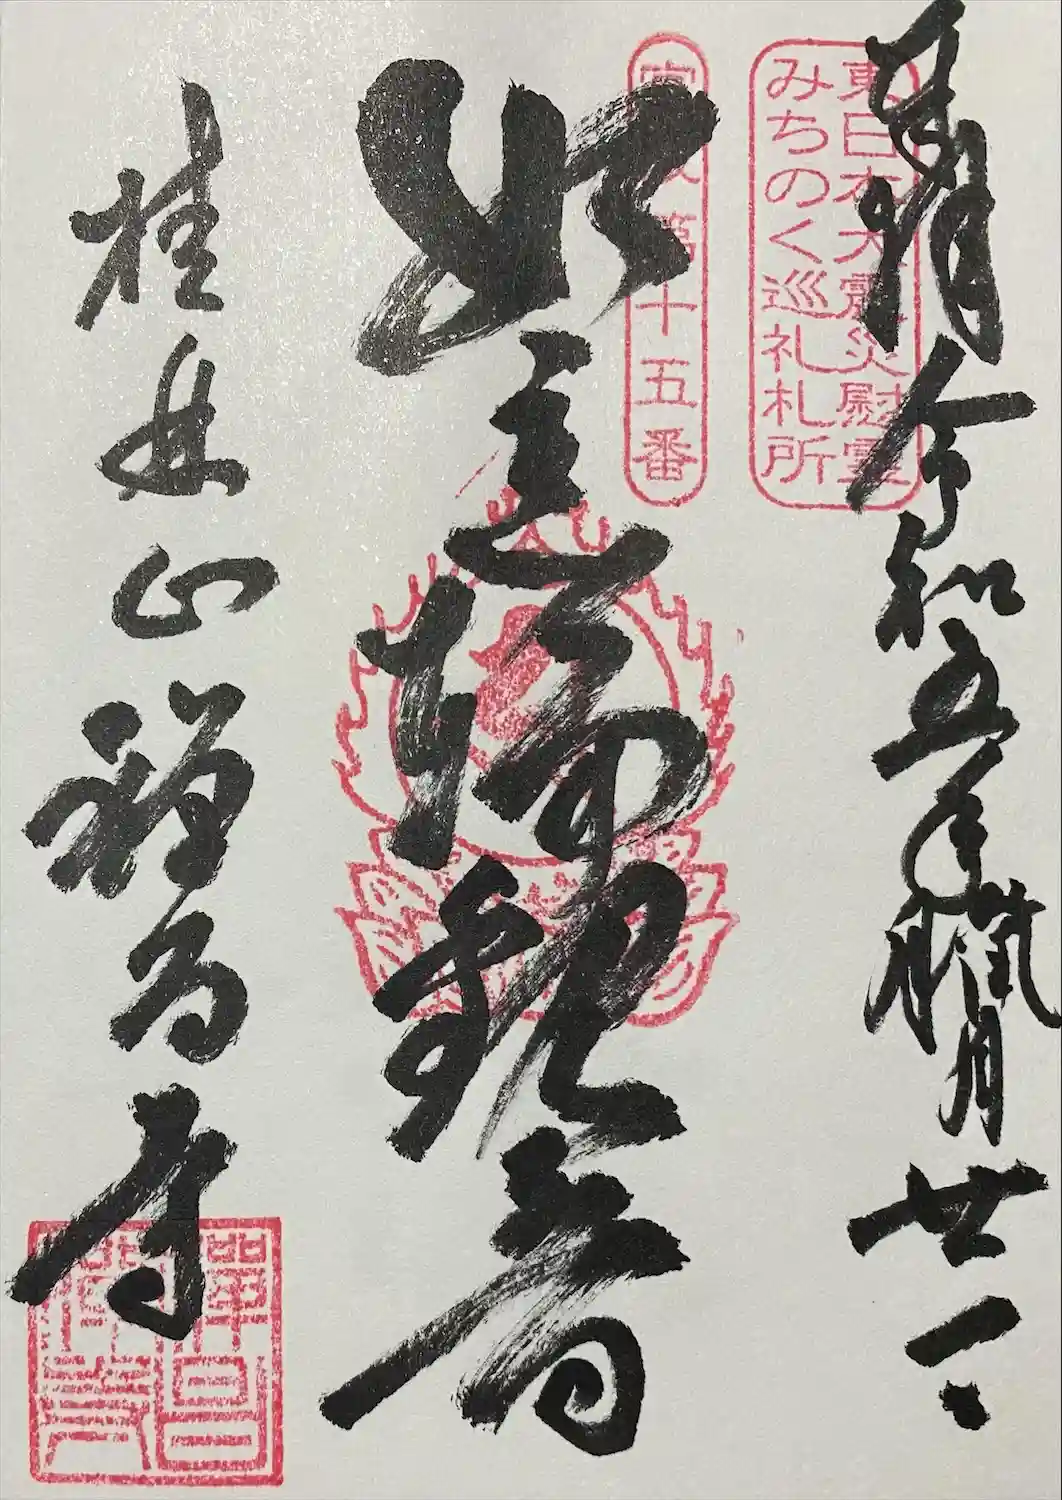 奉拝 令和五年臘月廿一日
東日本大震災慰霊
みちのく巡礼札所
宮城第十五番
如意輪観音
山 禅昌寺